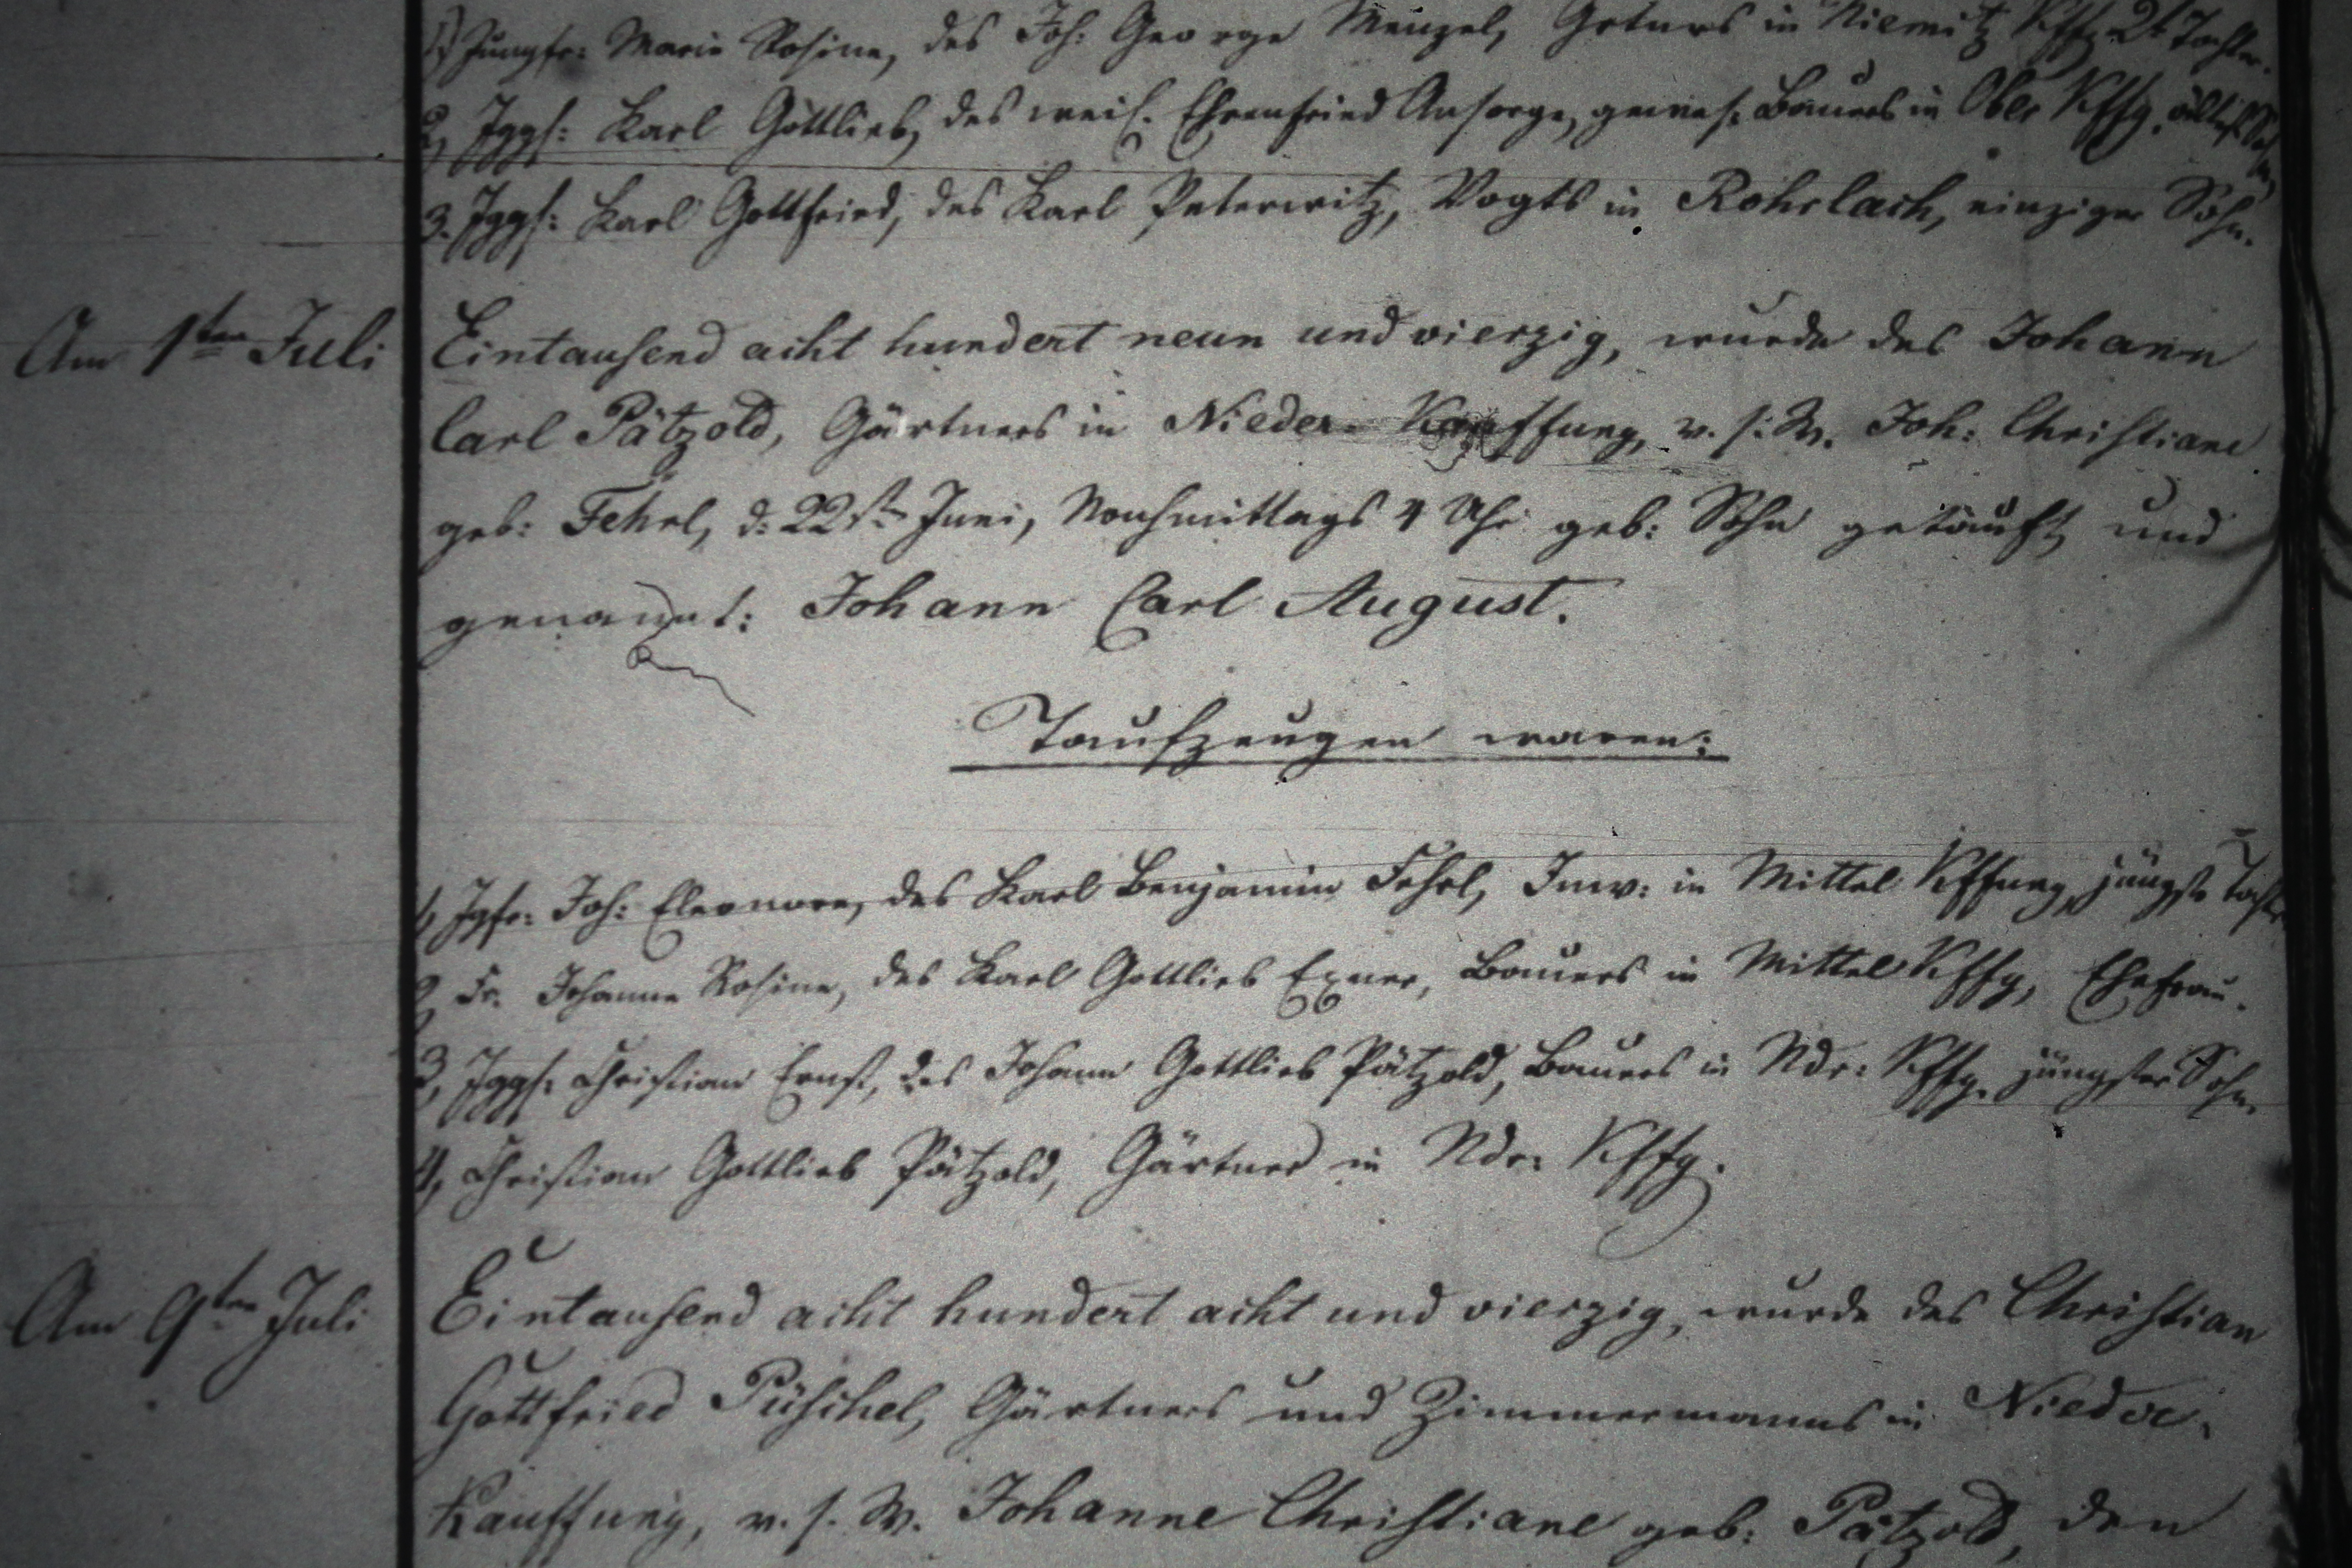 1) Jungfr: Marie Rosine, des Joh: George Menzel, Grtnrs in Niemitz Kffg 2t Tochter.
2, Jggs: Karl Gottlieb, des weil. Ehrenfried Ansorge, gewes. Bauers in Ober Kffg. ältest Sohn,
3. Jggs: Karl Gottfried, des Karl Peterwitz, Vogts in Rohrlach, einziger Sohn.
Am 1ten Juli Eintausend acht hundert neun und vierzig, wurde des Johann
Carl Pätzold, Gärtners in Nieder-Kauffung, v. s. W. Joh: Christiane
geb: Fehrl, d: 22st Juni, Nachmittags 4 Uhr geb: Sohn getauft und
genannt: Johann Carl August.
Taufzeugen waren:
1, Jgfr: Joh: Eleonore, des Karl Benjamin Fehrl, Inw: in Mittel Kffung jüngste Tochter
2, Fr. Johanne Rosine, des Karl Gottlieb Exner, Bauers in Mittel Kffg, Ehefrau.
3, Jggs: Christian Ernst, des Johann Gottlieb Pätzold, Bauers in Ndr: Kffg. jüngster Sohn.
4, Christian Gottlieb Pätzold, Gärtner in Ndr: Kffg.
Am 9ten Juli Eintausend acht hundert acht und vierzig, wurde des Christian
Gottfried Püschel, Gärtners und Zimmermanns in Nieder-
Kauffung, v. s. W. Johanne Christiane geb: Pätzold, den